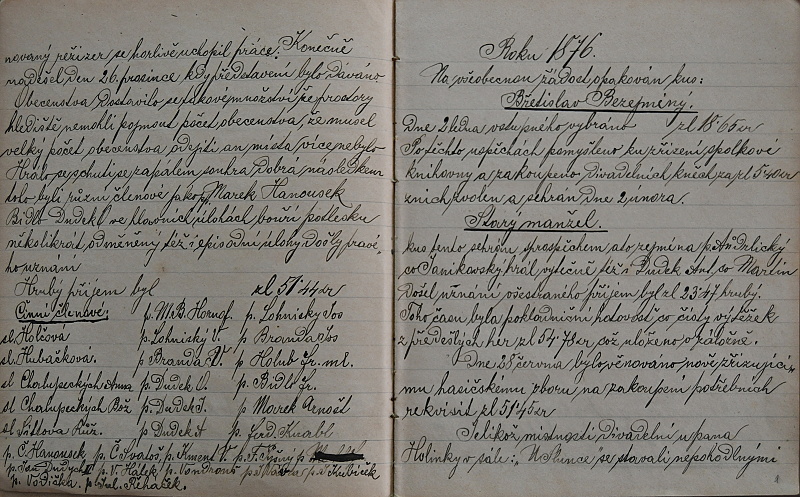 novaný režizer se horlivě uchopil práce. Konečně
nadešel den 26. prosince kdy představení bylo dáváno
Obecenstva dostavilo se takové množství že prostory
hlediště nemohli pojmout počet obecenstva, že musel
velký počet obecenstva odejíti an místa více nebylo
Hrálo se s chutí se zapálem souhra dobrá následkem
toho byli různí členové jako Marek Hanousek
Bidlo Dudek ve hlavních úlohách bouří potlesku
několikrát odměněný též i episodní úlohy došly pravé-
ho uznání
Hrubý příjem byl zl 51·44 kr
Činní členové: p. M. B. Hornof. p. Lohniský Jos
sl. Holčová p. Lohniský V. p. Branda Jos
sl. Hubačková. p. Branda V. p. Holub Fr. ml.
sl Chaloupeckých Anna p. Dudek V. p. Bidlo Fr.
sl Chaloupeckých Bož p. Dudek J. p. Marek Arnošt
sl Šitlova Růž. p. Dudek A p. Ferd. Knobl
p. Č. Hanousek p. Č. Svatoš p. Kment V. p. F. Pyšný p.
p. Jos p. V. Hálek p. Vondrouš p. p. Kubíček
p. Vodička. p. Jul. Řiháček.
Roku 1876.
Na všeobecnou žádost opakován kus:
Břetislav Bezejmený.
Dne 2 ledna vstupného vybráno zl 18·65 kr
Po těchto úspěchách pomýšleno ku zřízení spolkové
knihovny a zakoupeno divadelních kněh za zl 5·40 kr
z nich zvolen a sehrán dne 2 února.
Starý manžel.
kus tento sehrán s prospěchem a to zejména p. Drlický
co Janikovský hrál výtečně též i Dudek Ant. co Martin
došel uznání všestraného příjem byl zl 23·47 hrubý.
Toho času byla pokladniční hotovost co čistý výtěžek
z předešlých her zl 54·78 kr, což uloženo v záložně.
Dne 28 června bylo věnováno nově zřizujicí-
mu hasičskému zboru na zakoupení potřebních
rekvisit zl 51·45 kr
Jelikož místnosti divadelní u pana
Holinky v sále: „U Slunce" se stavali nepohodlnými